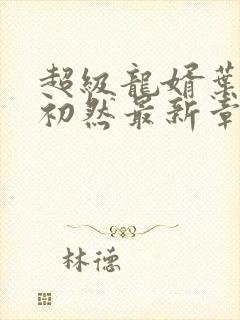 超級龍婿葉
初然最新章
林德